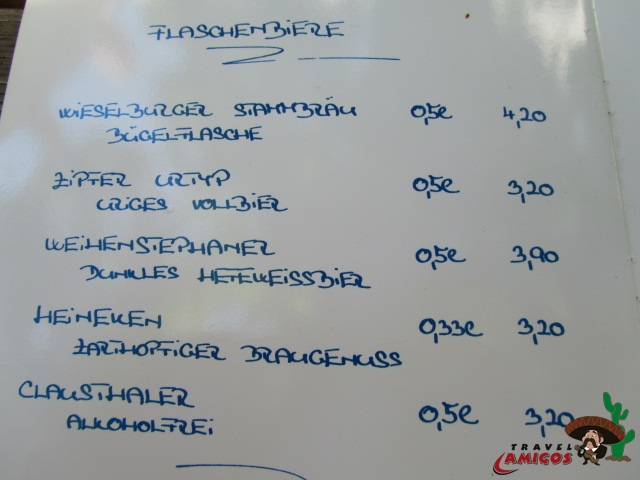 FLASCHENBIERE
WIESELBURGER STAMMBRÄU 0,5l 4,20
BÜGELFLASCHE
ZIPFER URTYP 0,5l 3,20
URIGES VOLLBIER
WEIHENSTEPHANER 0,5l 3,90
DUNKLES HEFEWEISSBIER
HEINEKEN 0,33l 3,20
ZARTHOPFIGER BRAUGENUSS
CLAUSTHALER 0,5l 3,20
ALKOHOLFREI
TRAVEL
AMIGOS